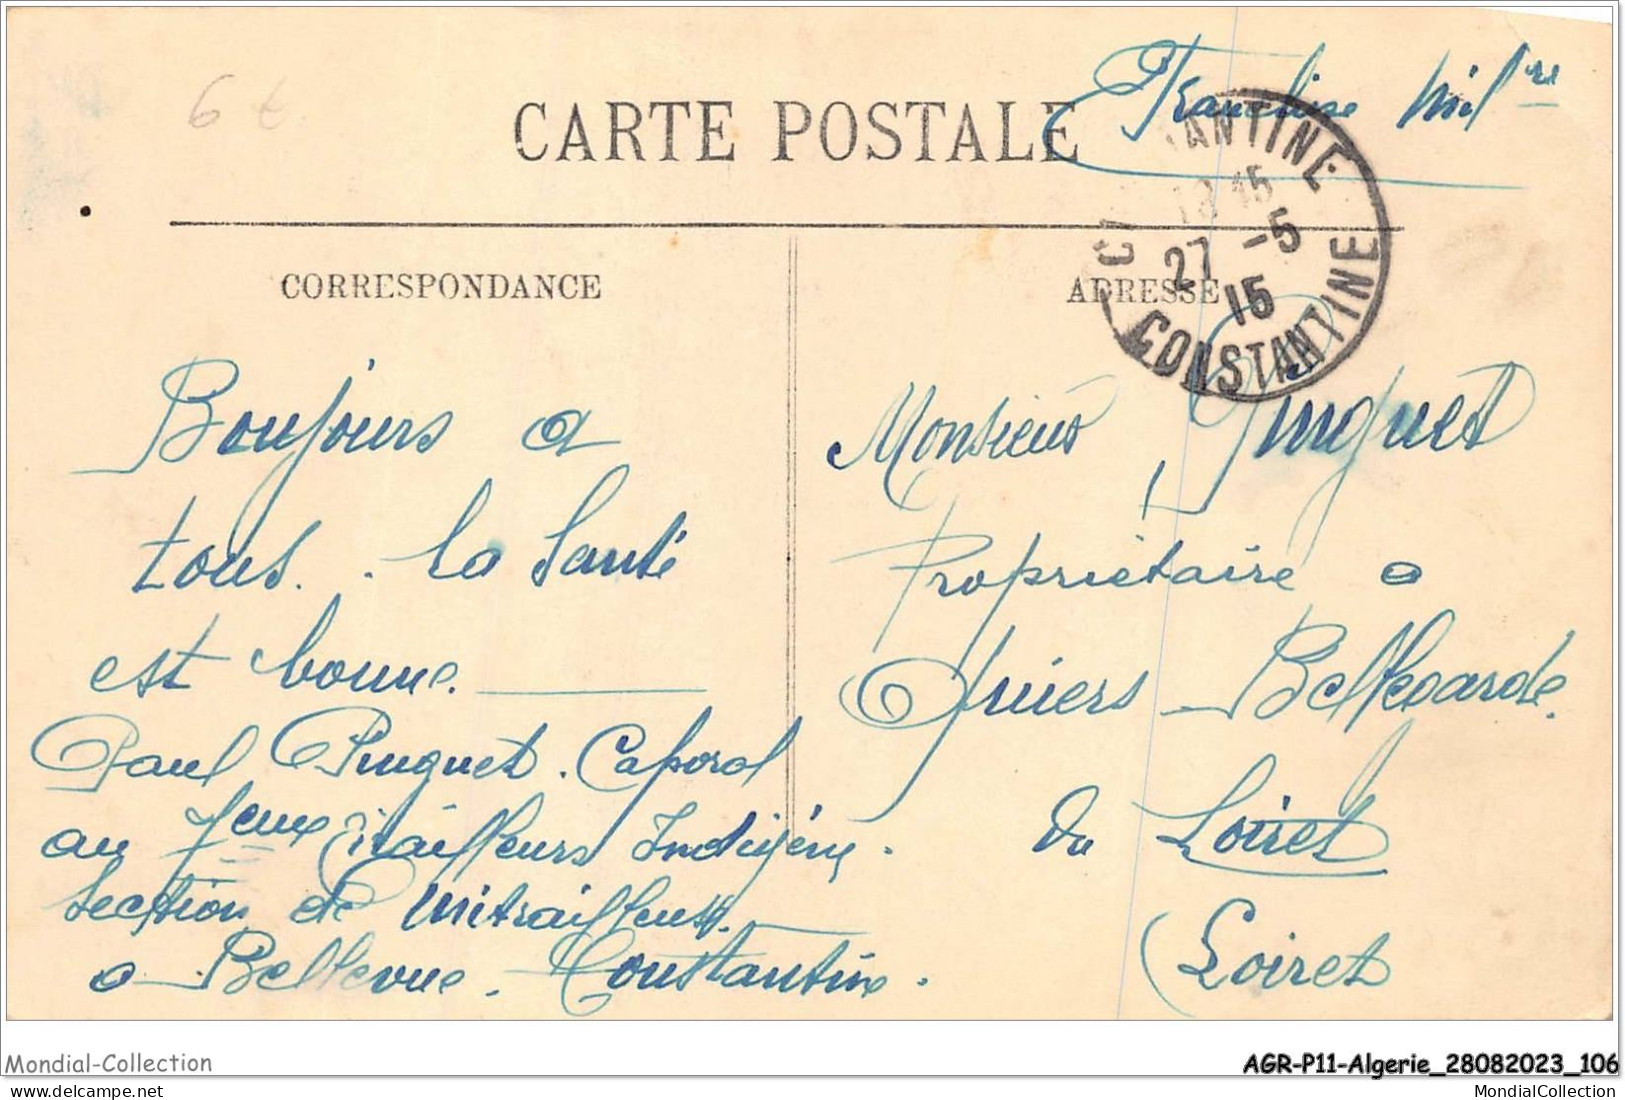 6 €
Franchise Milre
CARTE POSTALE
CONSTANTINE
18 45
27 -5
15
CONSTANTINE
CORRESPONDANCE
ADRESSE
Boujours a
tous. . la Santé
est bonne.
Paul Pinguet. Caporal
au 7eme Tirailleurs Indigène.
Section de Mitrailleus.
a Bellevue. Constantine.
Monsieur Pinguet
Propriétaire a
Quiers Bellegarde.
du Loiret
(Loiret
Mondial-Collection
AGR-P11-Algerie_28082023_106
MondialCollection